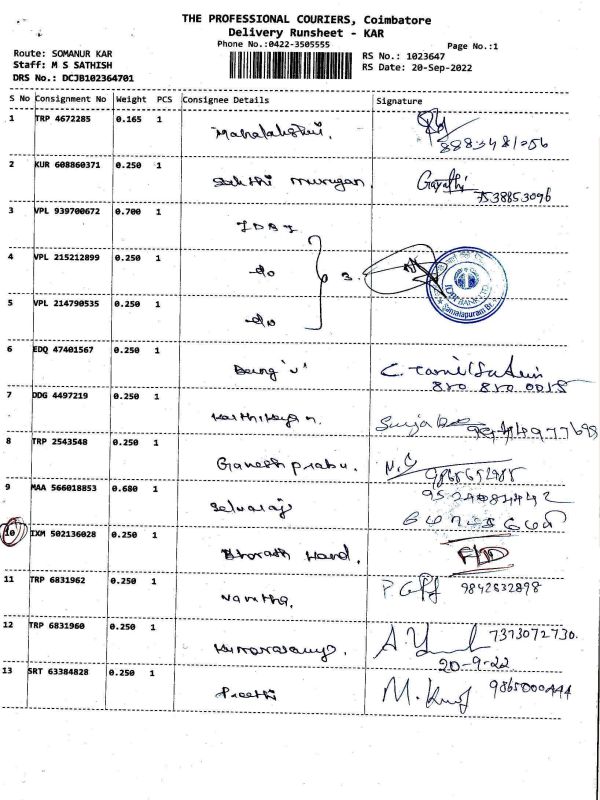 THE PROFESSIONAL COURIERS, Coimbatore
Delivery Runsheet - KAR
Phone No.:0422-3505555
Page No.:1
Route: SOMANUR KAR
RS No.: 1023647
Staff: M S SATHISH
RS Date: 20-Sep-2022
DRS No.: DCJB102364701
S No Consignment No Weight PCS Consignee Details Signature
1 TRP 4672285 0.165 1
Mahalakshmi.
2 KUR 608860371 0.250 1
Sakthi murugan. Gayathi
7538853096
3 VPL 939700672 0.700 1
IDBI
4 VPL 215212899 0.250 1
-do 3.
5 VPL 214790535 0.250 1
-do
6 EDQ 47401567 0.250 1
Being 'u'
7 DDG 4497219 0.250 1
Karthikeyan.
8 TRP 2543548 0.250 1
Ganesh prabu.
9 MAA 566018853 0.680 1
Selvaraj
10 IXM 502136028 0.250 1
Bharath Hand.
11 TRP 6831962 0.250 1
9842632898
Navitha.
12 TRP 6831960 0.250 1
7373072730.
Kumarasamy.
20-9-22
13 SRT 63384828 0.250 1
Preethi 9865000444